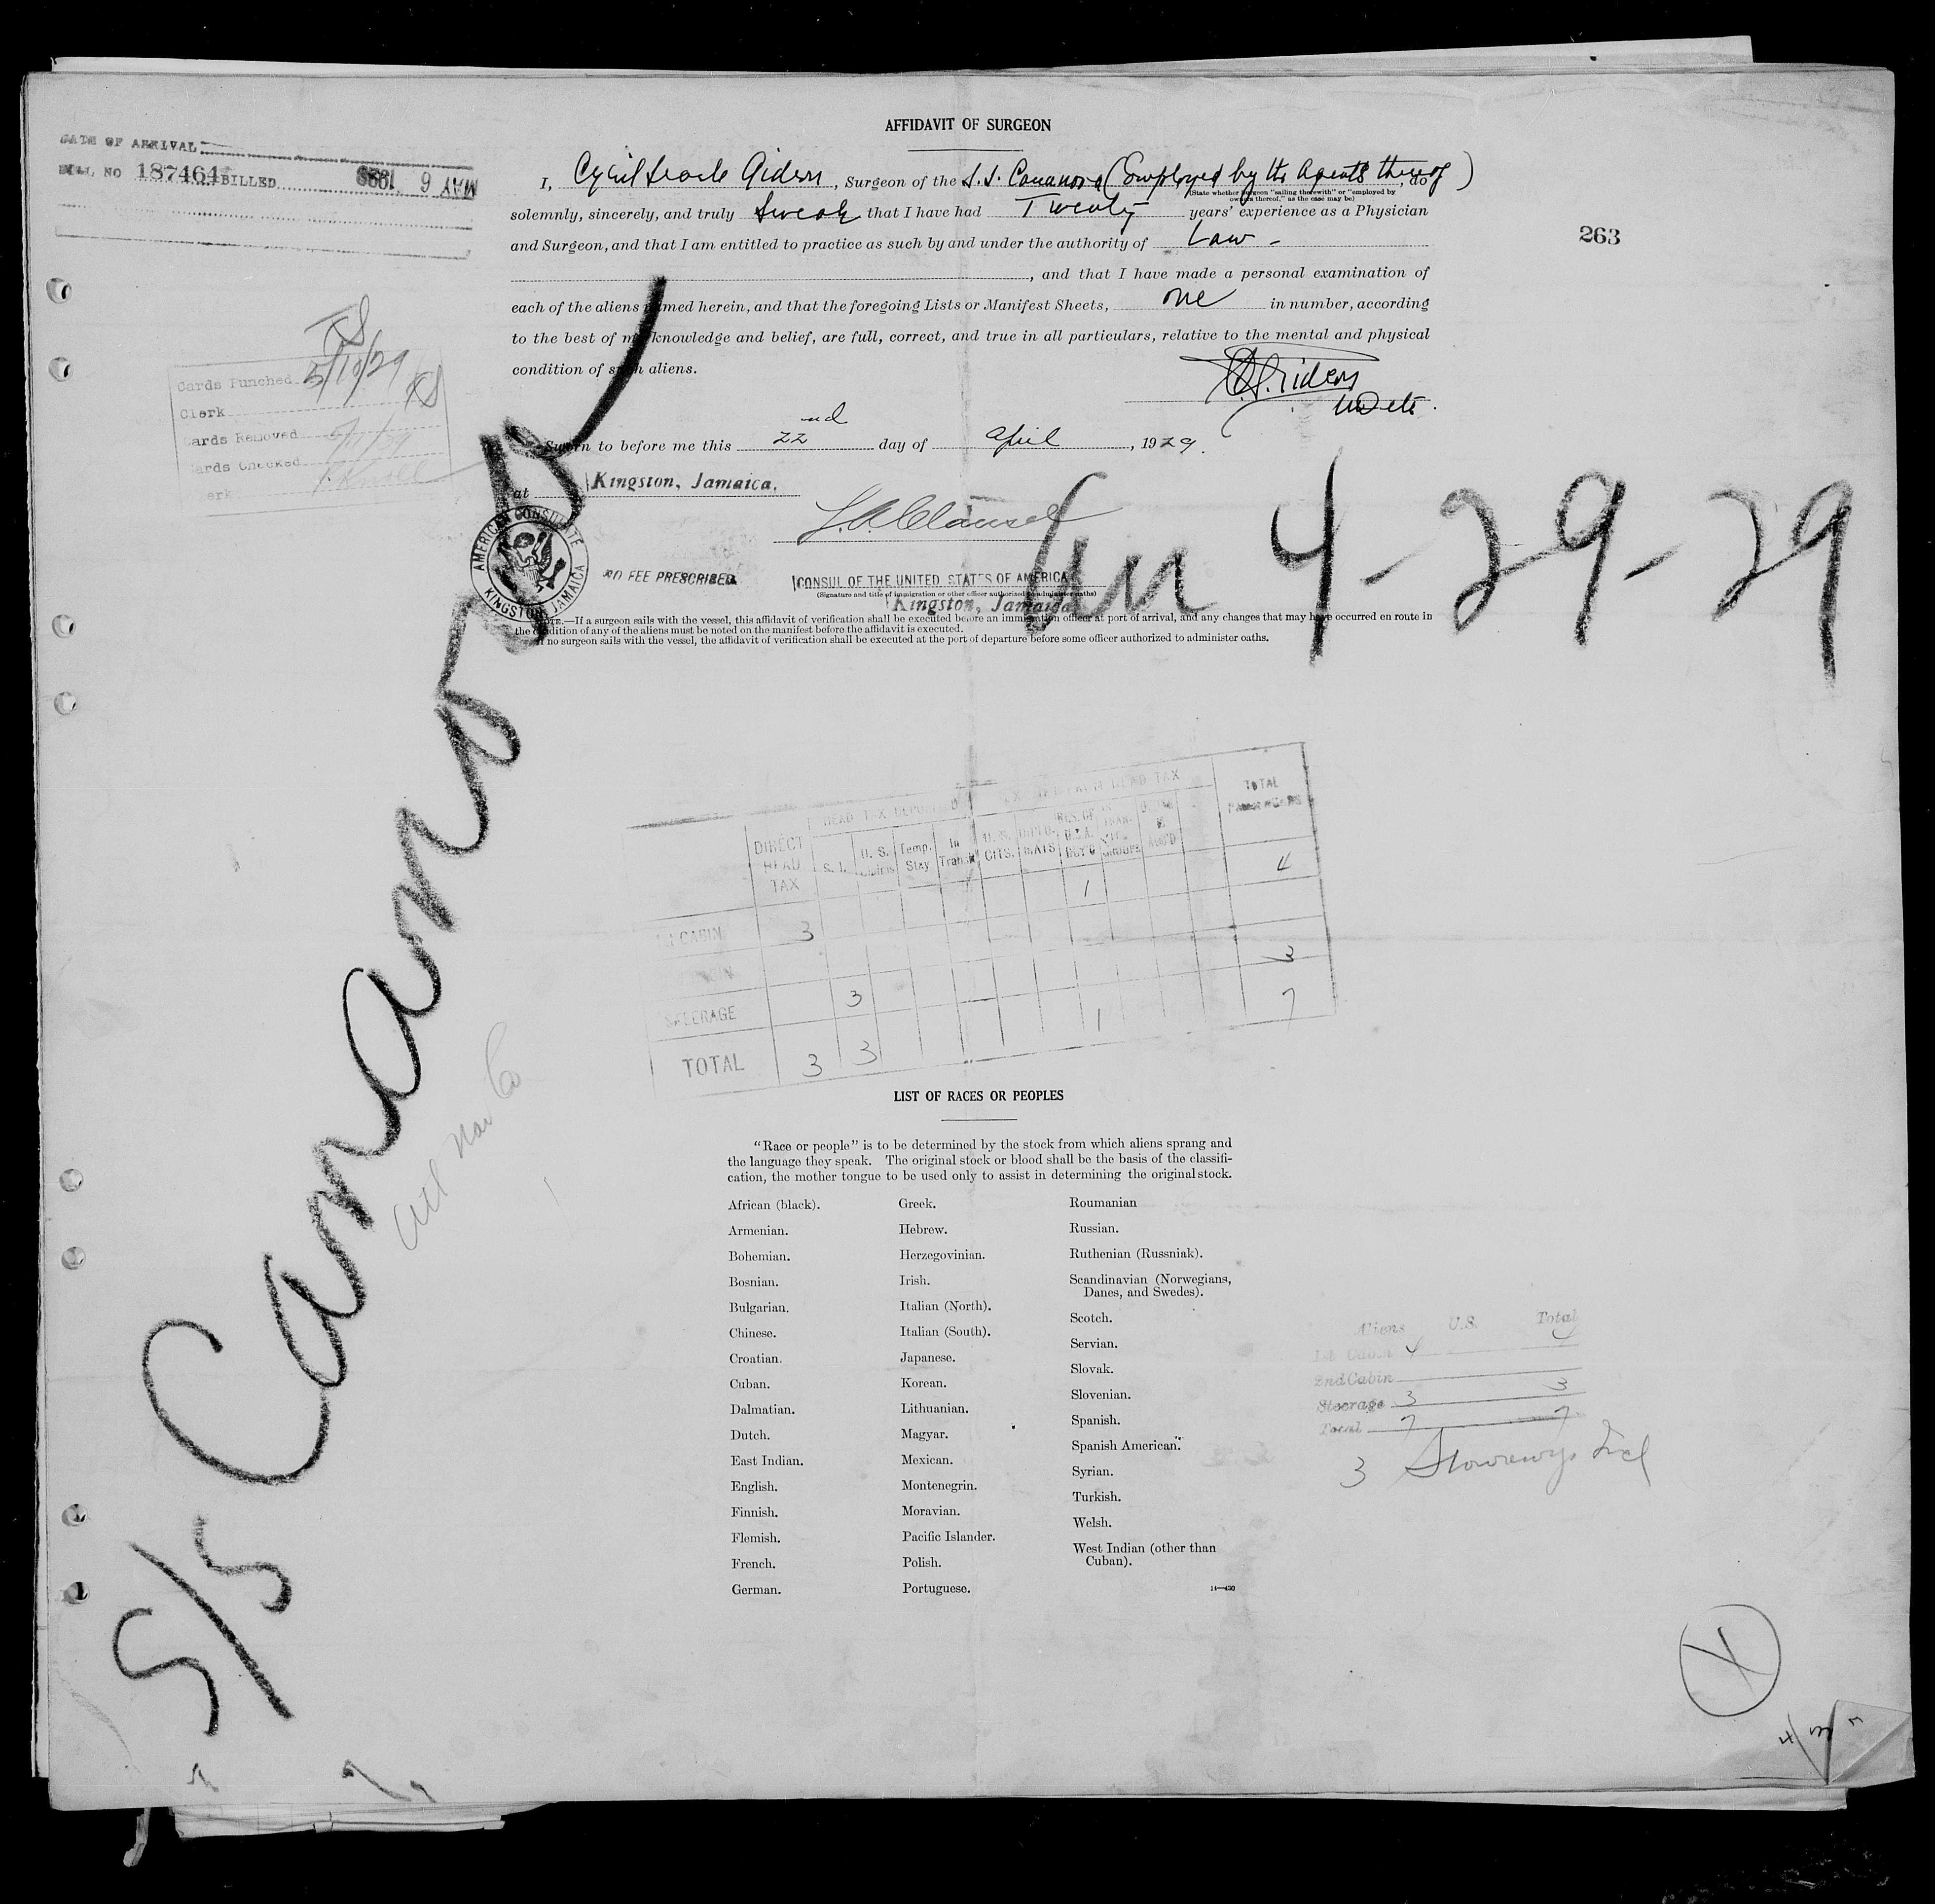 AFFIDAVIT OF SURGEON
DATE OF ARRIVAL
BILL NO 187464 BILLED MAY 6 1929
I, Cyril Gideon, Surgeon of the S.S. Cananova (Employed by the Agents thereof), do
(State whether surgeon "sailing therewith" or "employed by
owners thereof," as the case may be)
solemnly, sincerely, and truly swear that I have had Twenty years' experience as a Physician
and Surgeon, and that I am entitled to practice as such by and under the authority of Law -
263
, and that I have made a personal examination of
each of the aliens named herein, and that the foregoing Lists or Manifest Sheets, one in number, according
to the best of my knowledge and belief, are full, correct, and true in all particulars, relative to the mental and physical
condition of such aliens.
Cards Punched 5/10/29
Clerk
Cards Removed 5/11/29
Cards Checked
Clerk
Sworn to before me this 22nd day of April, 1929.
at Kingston, Jamaica.
AMERICAN CONSULATE
KINGSTON JAMAICA
NO FEE PRESCRIBED
CONSUL OF THE UNITED STATES OF AMERICA
(Signature and title of immigration or other officer authorized to administer oaths)
Kingston, Jamaica
4-29-29
NOTE.—If a surgeon sails with the vessel, this affidavit of verification shall be executed before an immigration officer at port of arrival, and any changes that may have occurred en route in
the condition of any of the aliens must be noted on the manifest before the affidavit is executed.
If no surgeon sails with the vessel, the affidavit of verification shall be executed at the port of departure before some officer authorized to administer oaths.
S/S Cananova
HEAD TAX DEPOSITED EXEMPT FROM HEAD TAX TOTAL PASSENGERS
DIRECT HEAD TAX S. I. U. S. Temp. Stay In Transit U. S. CITS.
1st CABIN 3 1 4
STEERAGE 3 3
TOTAL 3 3 1 7
LIST OF RACES OR PEOPLES
"Race or people" is to be determined by the stock from which aliens sprang and
the language they speak. The original stock or blood shall be the basis of the classifi-
cation, the mother tongue to be used only to assist in determining the original stock.
African (black). Greek. Roumanian
Armenian. Hebrew. Russian.
Bohemian. Herzegovinian. Ruthenian (Russniak).
Bosnian. Irish. Scandinavian (Norwegians,
Danes, and Swedes).
Bulgarian. Italian (North). Scotch.
Chinese. Italian (South). Servian.
Croatian. Japanese. Slovak.
Cuban. Korean. Slovenian.
Dalmatian. Lithuanian. Spanish.
Dutch. Magyar. Spanish American.
East Indian. Mexican. Syrian.
English. Montenegrin. Turkish.
Finnish. Moravian. Welsh.
Flemish. Pacific Islander. West Indian (other than
Cuban).
French. Polish.
German. Portuguese.
14—430
Aliens U.S. Total
1st Cabin 4 4
2nd Cabin
Steerage 3 3
Total 7 7
3 Stowaways